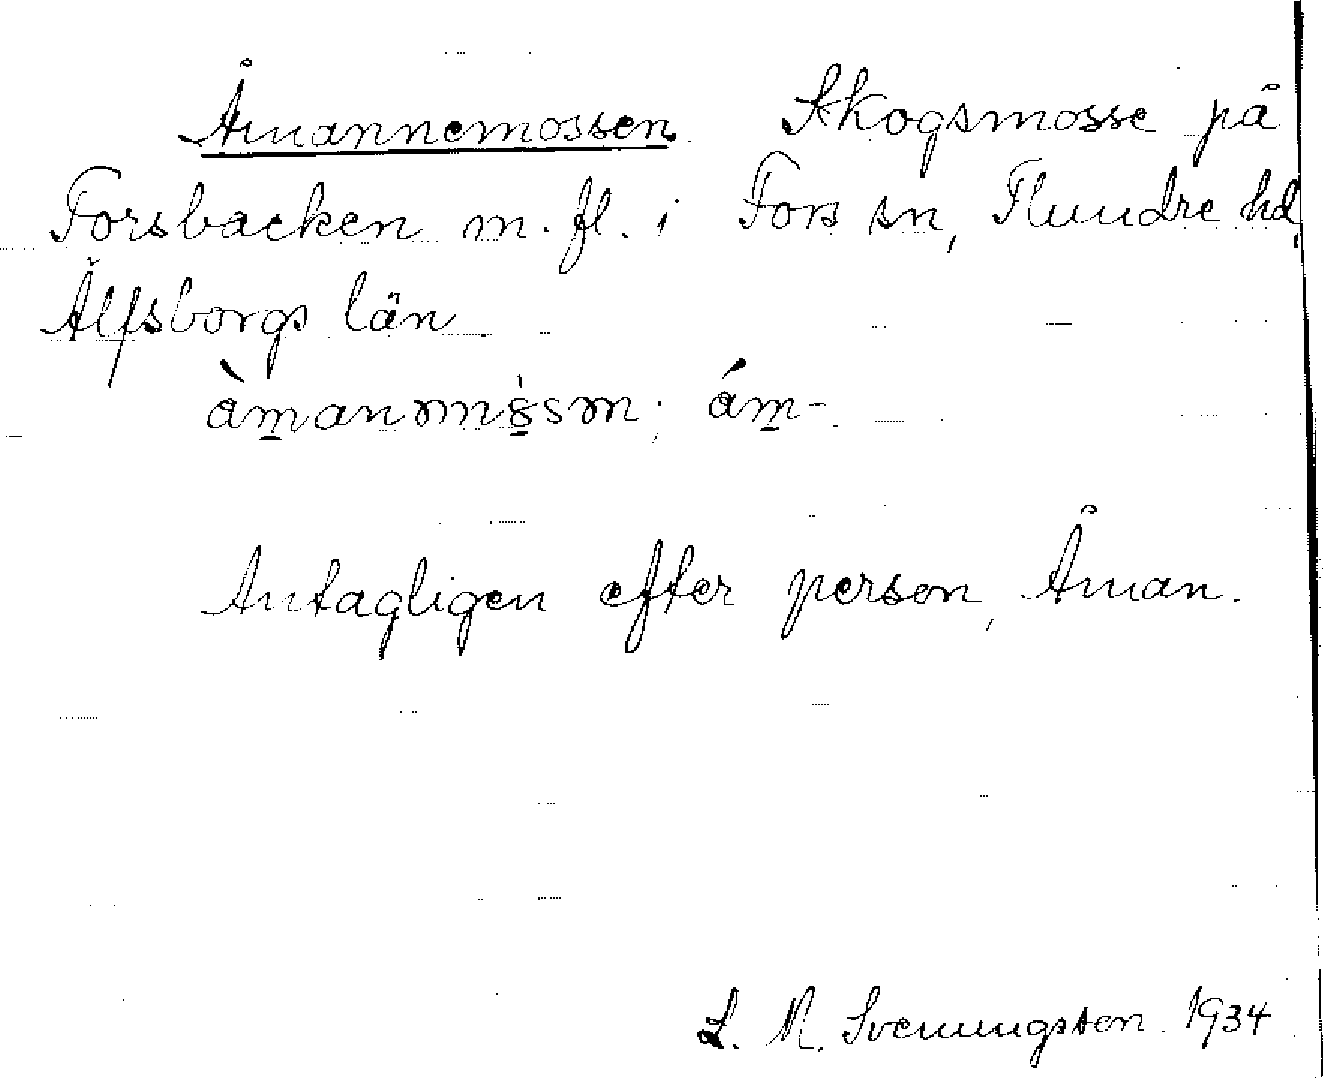 Åmannemossen Skogsmosse på
Forsbacken m. fl. i Fors sn, Flundre hd,
Älfsborgs län
Antagligen efter person, Åman.
L. M. Svenungsson 1934